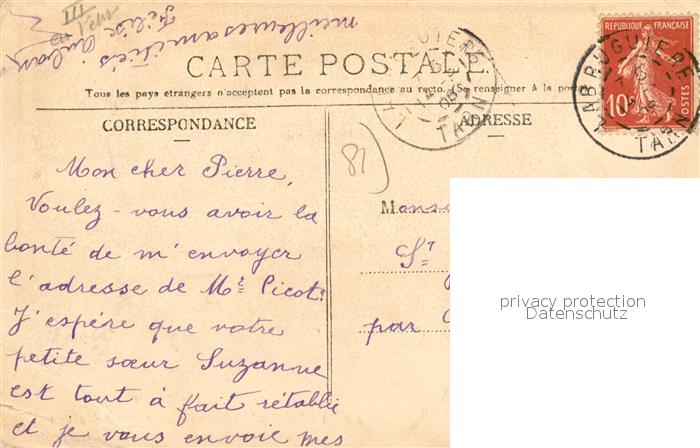 III
meilleures amitiés
Félix
CARTE POSTALE
Tous les pays étrangers n'acceptent pas la correspondance au recto. (Se renseigner à la poste)
CORRESPONDANCE
ADRESSE
Mon cher Pierre,
Voulez-vous avoir la
bonté de m'envoyer
l'adresse de Mr Picot?
J'espère que votre
petite sœur Suzanne
est tout à fait rétablie
et je vous envoie mes
81)
Mons
St
par
RÉPUBLIQUE FRANÇAISE
10
POSTES
LABRUGUIERE
TARN
LABRUGUIERE
TARN
privacy protection
Datenschutz